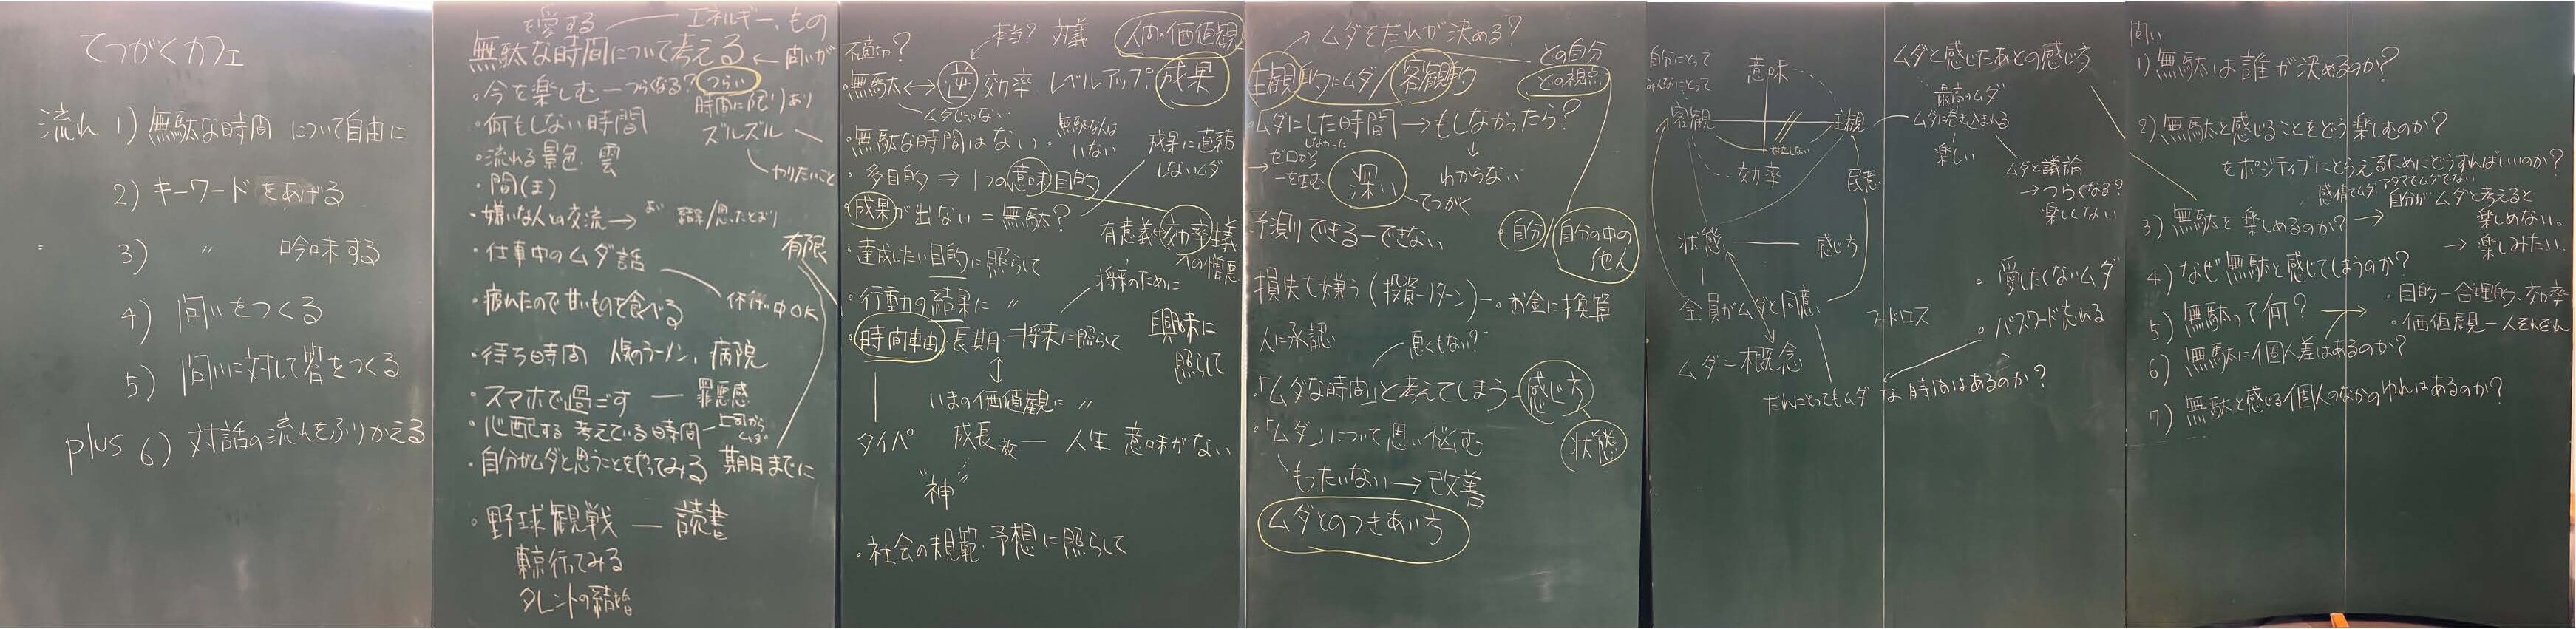 てつがくカフェ
流れ 1) 無駄な時間 について自由に
2) キーワードをあげる
3) 〃 吟味する
4) 問いをつくる
5) 問いに対して答をつくる
plus 6) 対話の流れをふりかえる
を愛する エネルギー、もの
無駄な時間について考える ← 問いが
・今を楽しむ―つらくなる? つらい
時間に限りあり
・何もしない時間
ズルズル
・流れる景色、雲
やりたいこと
・間(ま)
・嫌いな人との交流→
・仕事中のムダ話
有限
休けい中OK
・疲れたので甘いものを食べる
・待ち時間 人気のラーメン、病院
・スマホで過ごす ― 罪悪感
・心配する 考えている時間 ― 上司から ムダ
・自分がムダと思うことをやってみる 期日までに
・野球観戦 ― 読書
東京行ってみる
タレントの結婚
本当? 対義 人間の価値観
不道切?
・無駄←→逆 効率 レベルアップ? 成果
ムダじゃない
・無駄な時間はない・ 無駄な人はいない
成果に直結しないムダ
・多目的 ⇒ 1つの意味目的
・成果が出ない=無駄?
有意義・効率主義
への憎悪
・達成したい目的に照らして
将来のために
・行動の結果に 〃
・時間軸 長期 ― 将来に照らして
興味に照らして
いまの価値観に 〃
タイパ 成長教 ― 人生 意味がない
"神"
・社会の規範・予想に照らして
→ムダをだれが決める?
どの自分
どの視点
主観的にムダ/客観的
・ムダにした時間→もしなかったら?
しなかった
→ゼロから一を生む 深い わからない
てつがく
予測できる―できない
自分/自分の中の他人
損失を嫌う (投資―リターン)―・お金に換算
人に承認
悪くもない?
・「ムダな時間」と考えてしまう―感じ方
・「ムダ」について思い悩む 状態
もったいない→改善
ムダとのつきあい方
自分にとって
みんなにとって
意味
客観 主観
対立しない
効率
民意
状態 ― 感じ方
全員がムダと同意
ムダ=概念
ムダと感じたあとの感じ方
最高のムダ
ムダに巻き込まれる
楽しい
ムダと議論
→つらくなる?
楽しくない
・愛したくないムダ
フードロス
・パスワード忘れる
だれにとってもムダな時間はあるのか?
問い
1) 無駄は誰が決めるのか?
2) 無駄と感じることをどう楽しむのか?
をポジティブにとらえるためにどうすればいいのか?
感情でムダ、アタマでムダでない
3) 無駄を楽しめるのか? → 自分がムダと考えると楽しめない。
→ 楽しみたい
4) なぜ無駄と感じてしまうのか?
5) 無駄って何? → ・目的―合理的・効率
・価値観―人それぞれ
6) 無駄に個人差はあるのか?
7) 無駄と感じる個人のなかのゆれはあるのか?